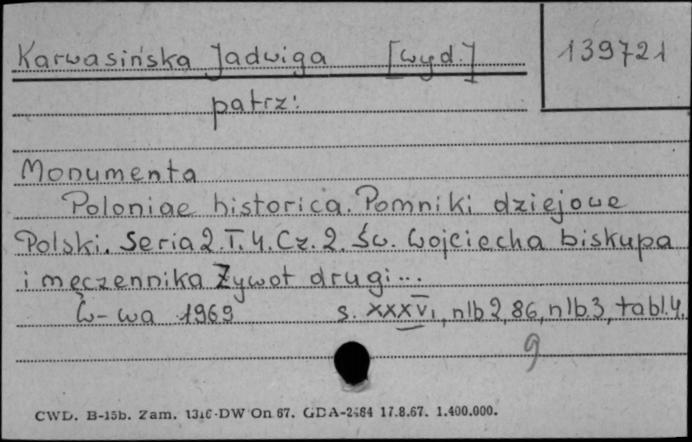 Karwasińska Jadwiga [wyd.] 139721
patrz:
Monumenta
Poloniae historica. Pomniki dziejowe
Polski. Seria 2. T. 4. Cz. 2. Św. Wojciecha biskupa
i męczennika Żywot drugi...
W-wa 1969 s. XXXVI, nlb 2, 86, nlb 3, tabl. 4.
9
CWD. B-15b. Zam. 1316-DW On 67. GDA-2484 17.8.67. 1.400.000.